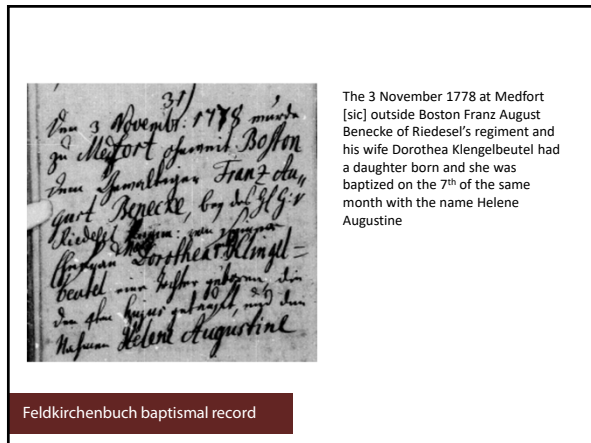 31
Den 3 Novembr: 1778 wurde
zu Medfort ohnweit Boston
dem Franz Au„
gust Benecke, bey des
Riedesel Regim:
Ehefrau Dorothea Klingel=
beutel eine Tochter gebohren, die
den hujus getauft, und den
Nahmen Helene Augustine
The 3 November 1778 at Medfort
[sic] outside Boston Franz August
Benecke of Riedesel’s regiment and
his wife Dorothea Klengelbeutel had
a daughter born and she was
baptized on the 7th of the same
month with the name Helene
Augustine
Feldkirchenbuch baptismal record